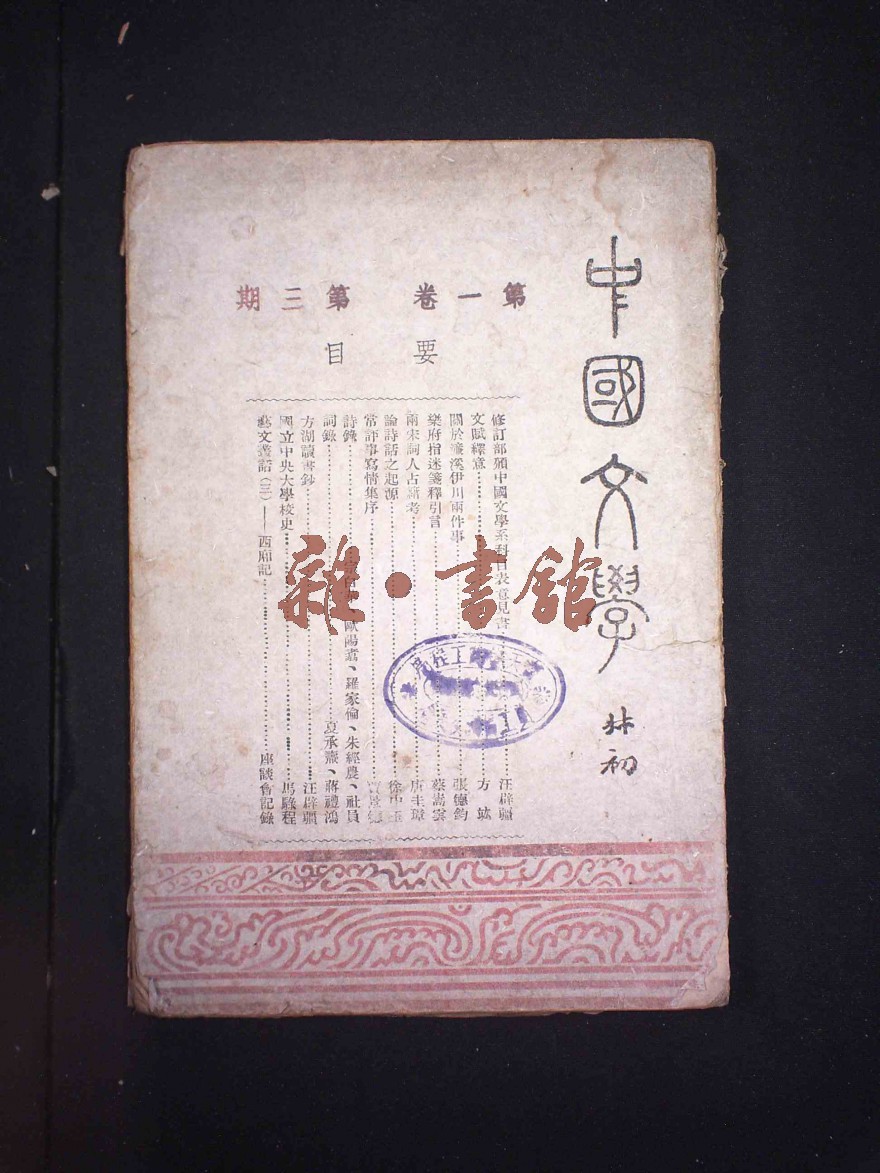 中國文學
林初
第一卷 第三期
要目
修訂部頒中國文學系科目表意見書 汪辟疆
文賦釋意 方竑
關於濂溪伊川兩件事 張德鈞
樂府指迷箋釋引言 蔡嵩雲
兩宋詞人占籍考 唐圭璋
論詩話之起源 徐中玉
常評事寫情集序
詩錄 歐陽翥、羅家倫、朱經農、社員
詞錄 夏承燾、蔣禮鴻
方湖讀書鈔 汪辟疆
國立中央大學校史 馬騄程
藝文叢話(三)——西廂記 座談會記錄
雜·書館